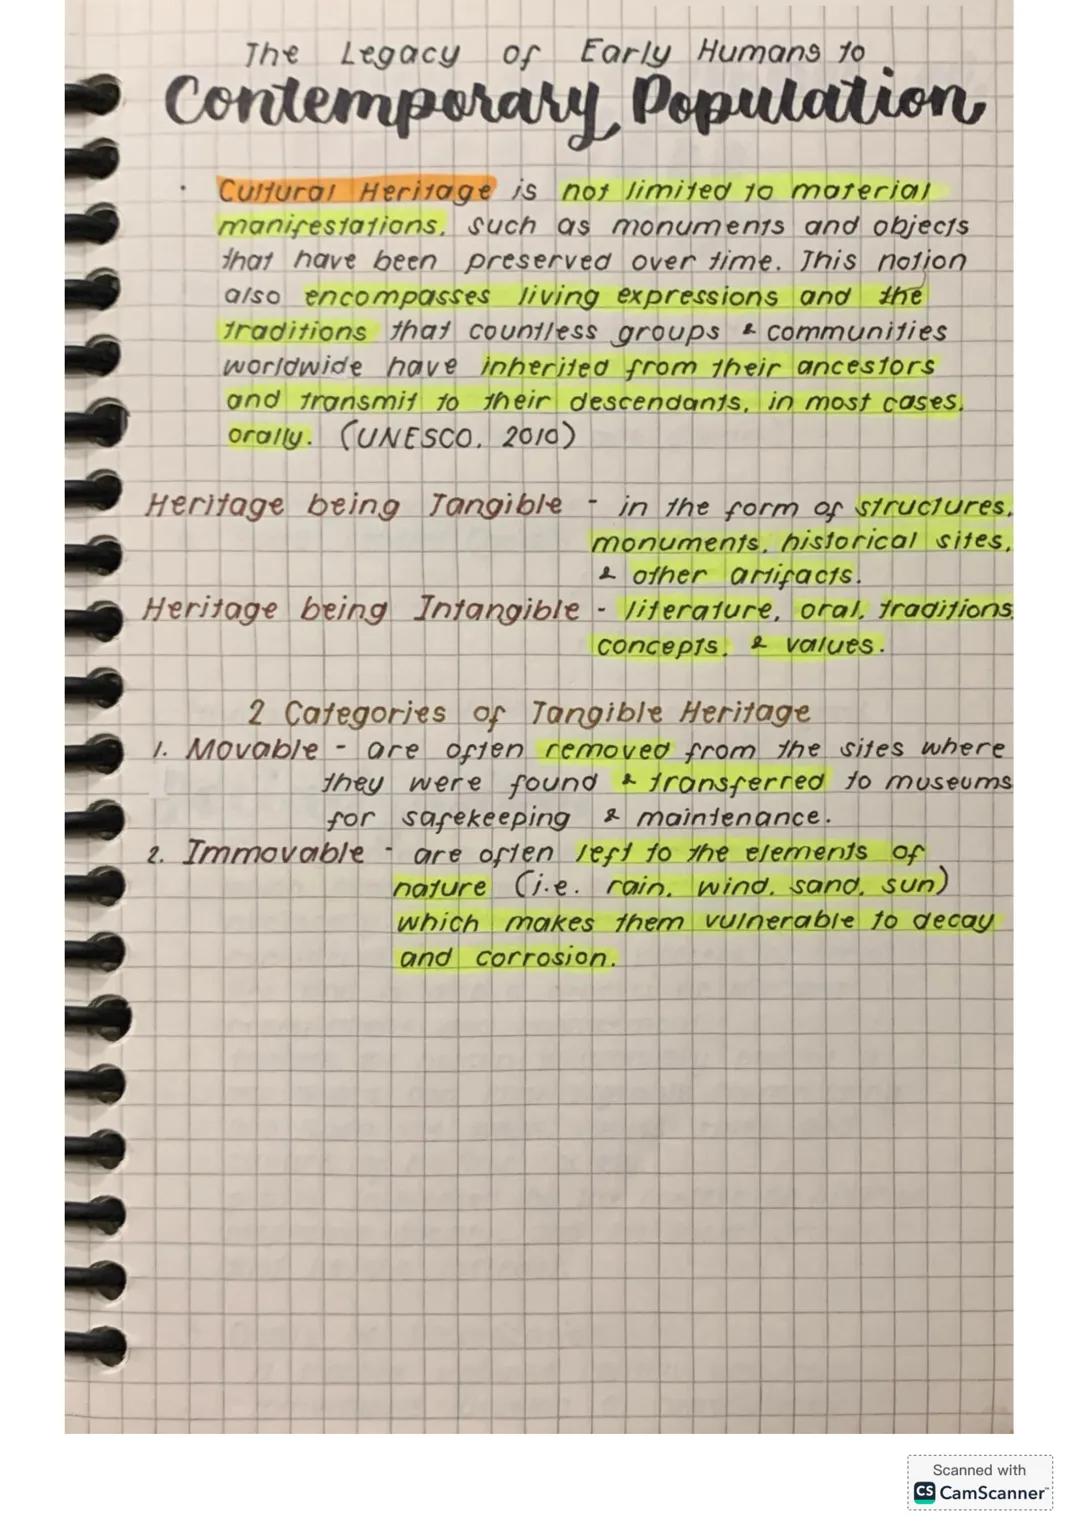 The Legacy of Early Humans to
Contemporary Population
• Cultural Heritage is not limited to material
manifestations, such as monuments and objects
that have been preserved over time. This notion
also encompasses living expressions and the
traditions that countless groups & communities
worldwide have inherited from their ancestors
and transmit to their descendants, in most cases,
orally. (UNESCO, 2010)
Heritage being Tangible - in the form of structures,
monuments, historical sites,
& other artifacts.
Heritage being Intangible - literature, oral, traditions,
concepts, & values.
2 Categories of Tangible Heritage
1. Movable - are often removed from the sites where
they were found & transferred to museums
for safekeeping & maintenance.
2. Immovable - are often left to the elements of
nature (i.e. rain, wind, sand, sun)
which makes them vulnerable to decay
and corrosion.
Scanned with
CS CamScanner